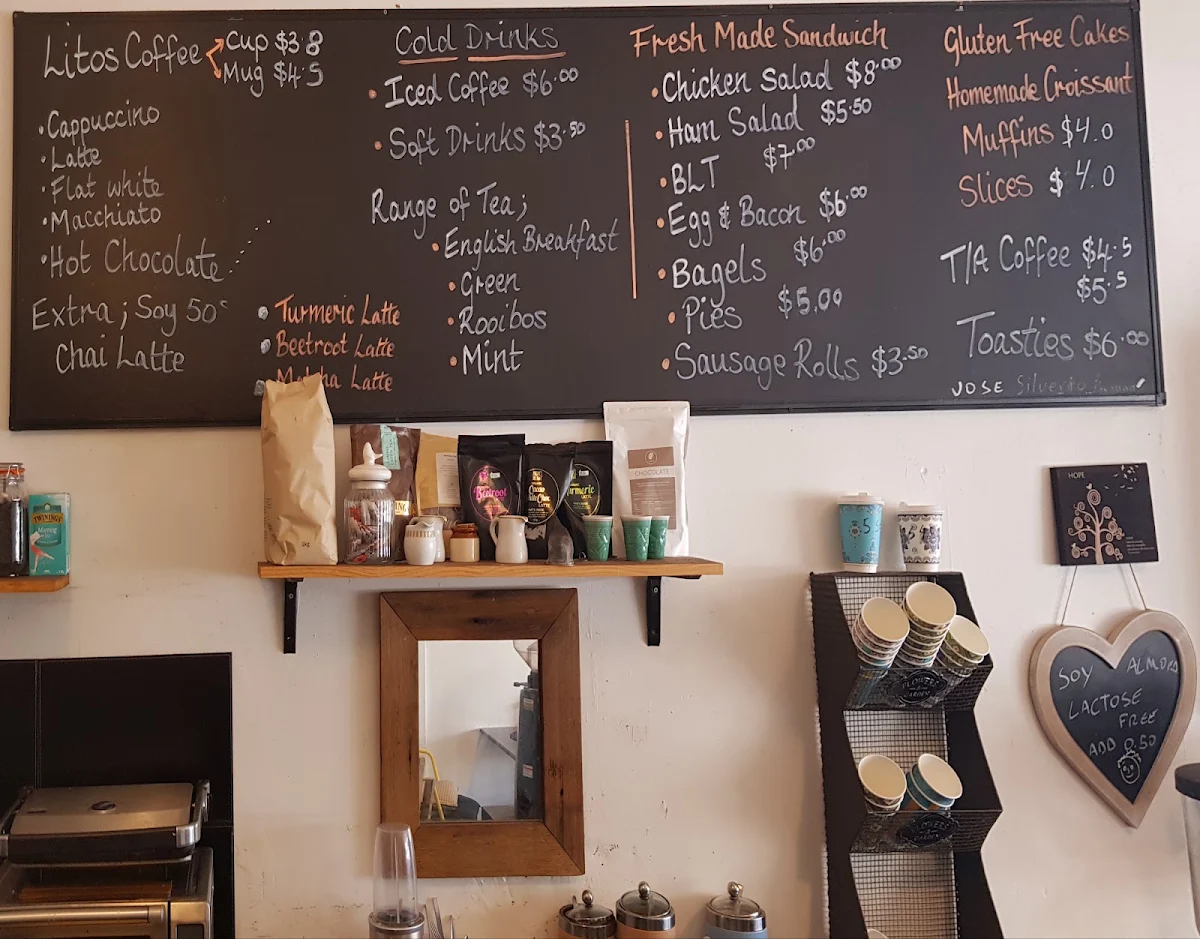 Litos Coffee Cup $3.8
Mug $4.5
• Cappuccino
• Latte
• Flat white
• Macchiato
• Hot Chocolate
Extra; Soy 50c
Chai Latte
• Turmeric Latte
• Beetroot Latte
• Matcha Latte
Cold Drinks
• Iced Coffee $6.00
• Soft Drinks $3.50
Range of Tea;
• English Breakfast
• Green
• Rooibos
• Mint
Fresh Made Sandwich
• Chicken Salad $8.00
• Ham Salad $5.50
• BLT $7.00
• Egg & Bacon $6.00
• Bagels $6.00
• Pies $5.00
• Sausage Rolls $3.50
Gluten Free Cakes
Homemade Croissant
Muffins $4.0
Slices $4.0
T/A Coffee $4.5
$5.5
Toasties $6.00
JOSE
TWININGS
Morning
Beetroot
LATTE
Cacao
LATTE
Turmeric
LATTE
CHOCOLATE
5
HOPE
SOY ALMOND
LACTOSE
FREE
ADD 0.50